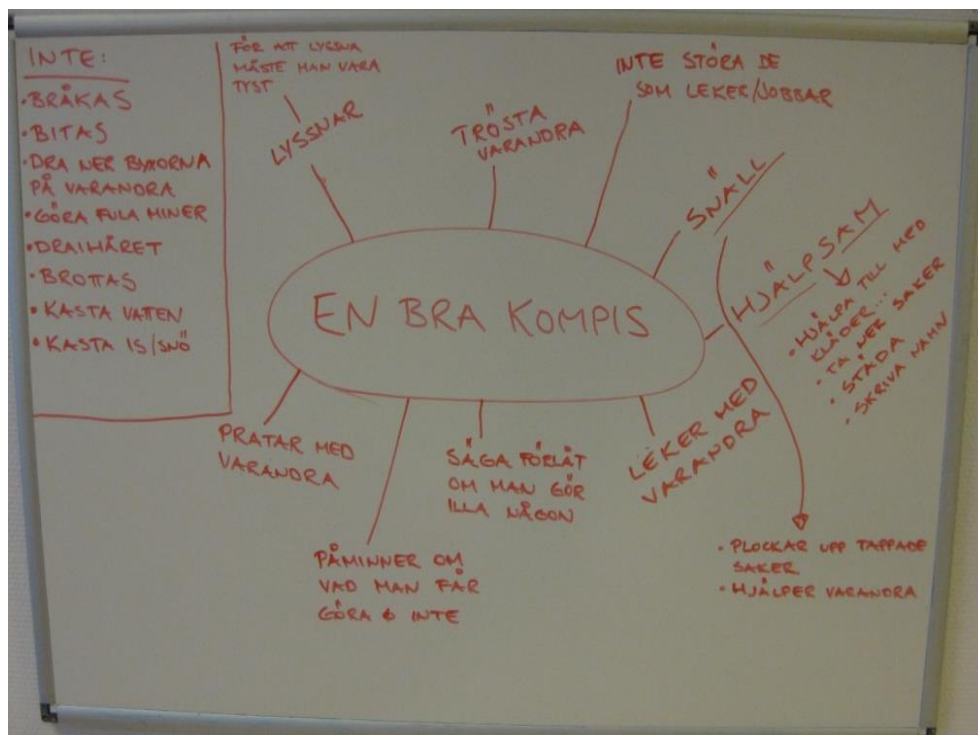 INTE:
• BRÅKAS
• BITAS
• DRA NER BYXORNA
PÅ VARANDRA
• GÖRA FULA MINER
• DRA I HÅRET
• BROTTAS
• KASTA VATTEN
• KASTA IS/SNÖ
FÖR ATT LYSSNA
MÅSTE MAN VARA
TYST
LYSSNAR
TRÖSTA
VARANDRA
INTE STÖRA DE
SOM LEKER/JOBBAR
SNÄLL
HJÄLPSAM
• HJÄLPA TILL MED
KLÄDER...
• TA NER SAKER
• STÄDA
• SKRIVA NAMN
EN BRA KOMPIS
PRATAR MED
VARANDRA
PÅMINNER OM
VAD MAN FÅR
GÖRA & INTE
SÄGA FÖRLÅT
OM MAN GÖR
ILLA NÅGON
LEKER MED
VARANDRA
• PLOCKAR UPP TAPPADE
SAKER
• HJÄLPER VARANDRA